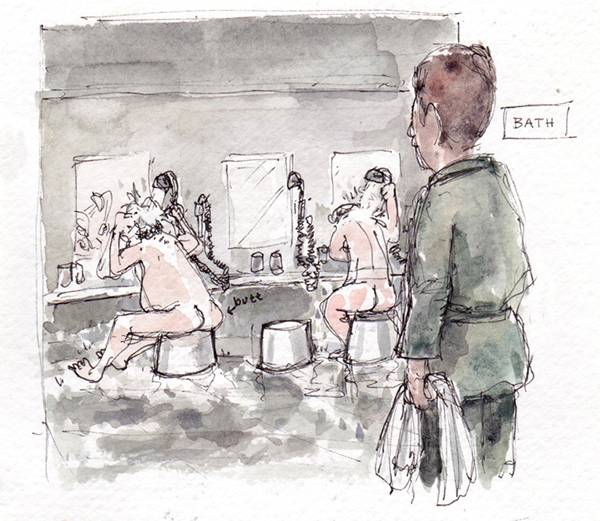 BATH
butt